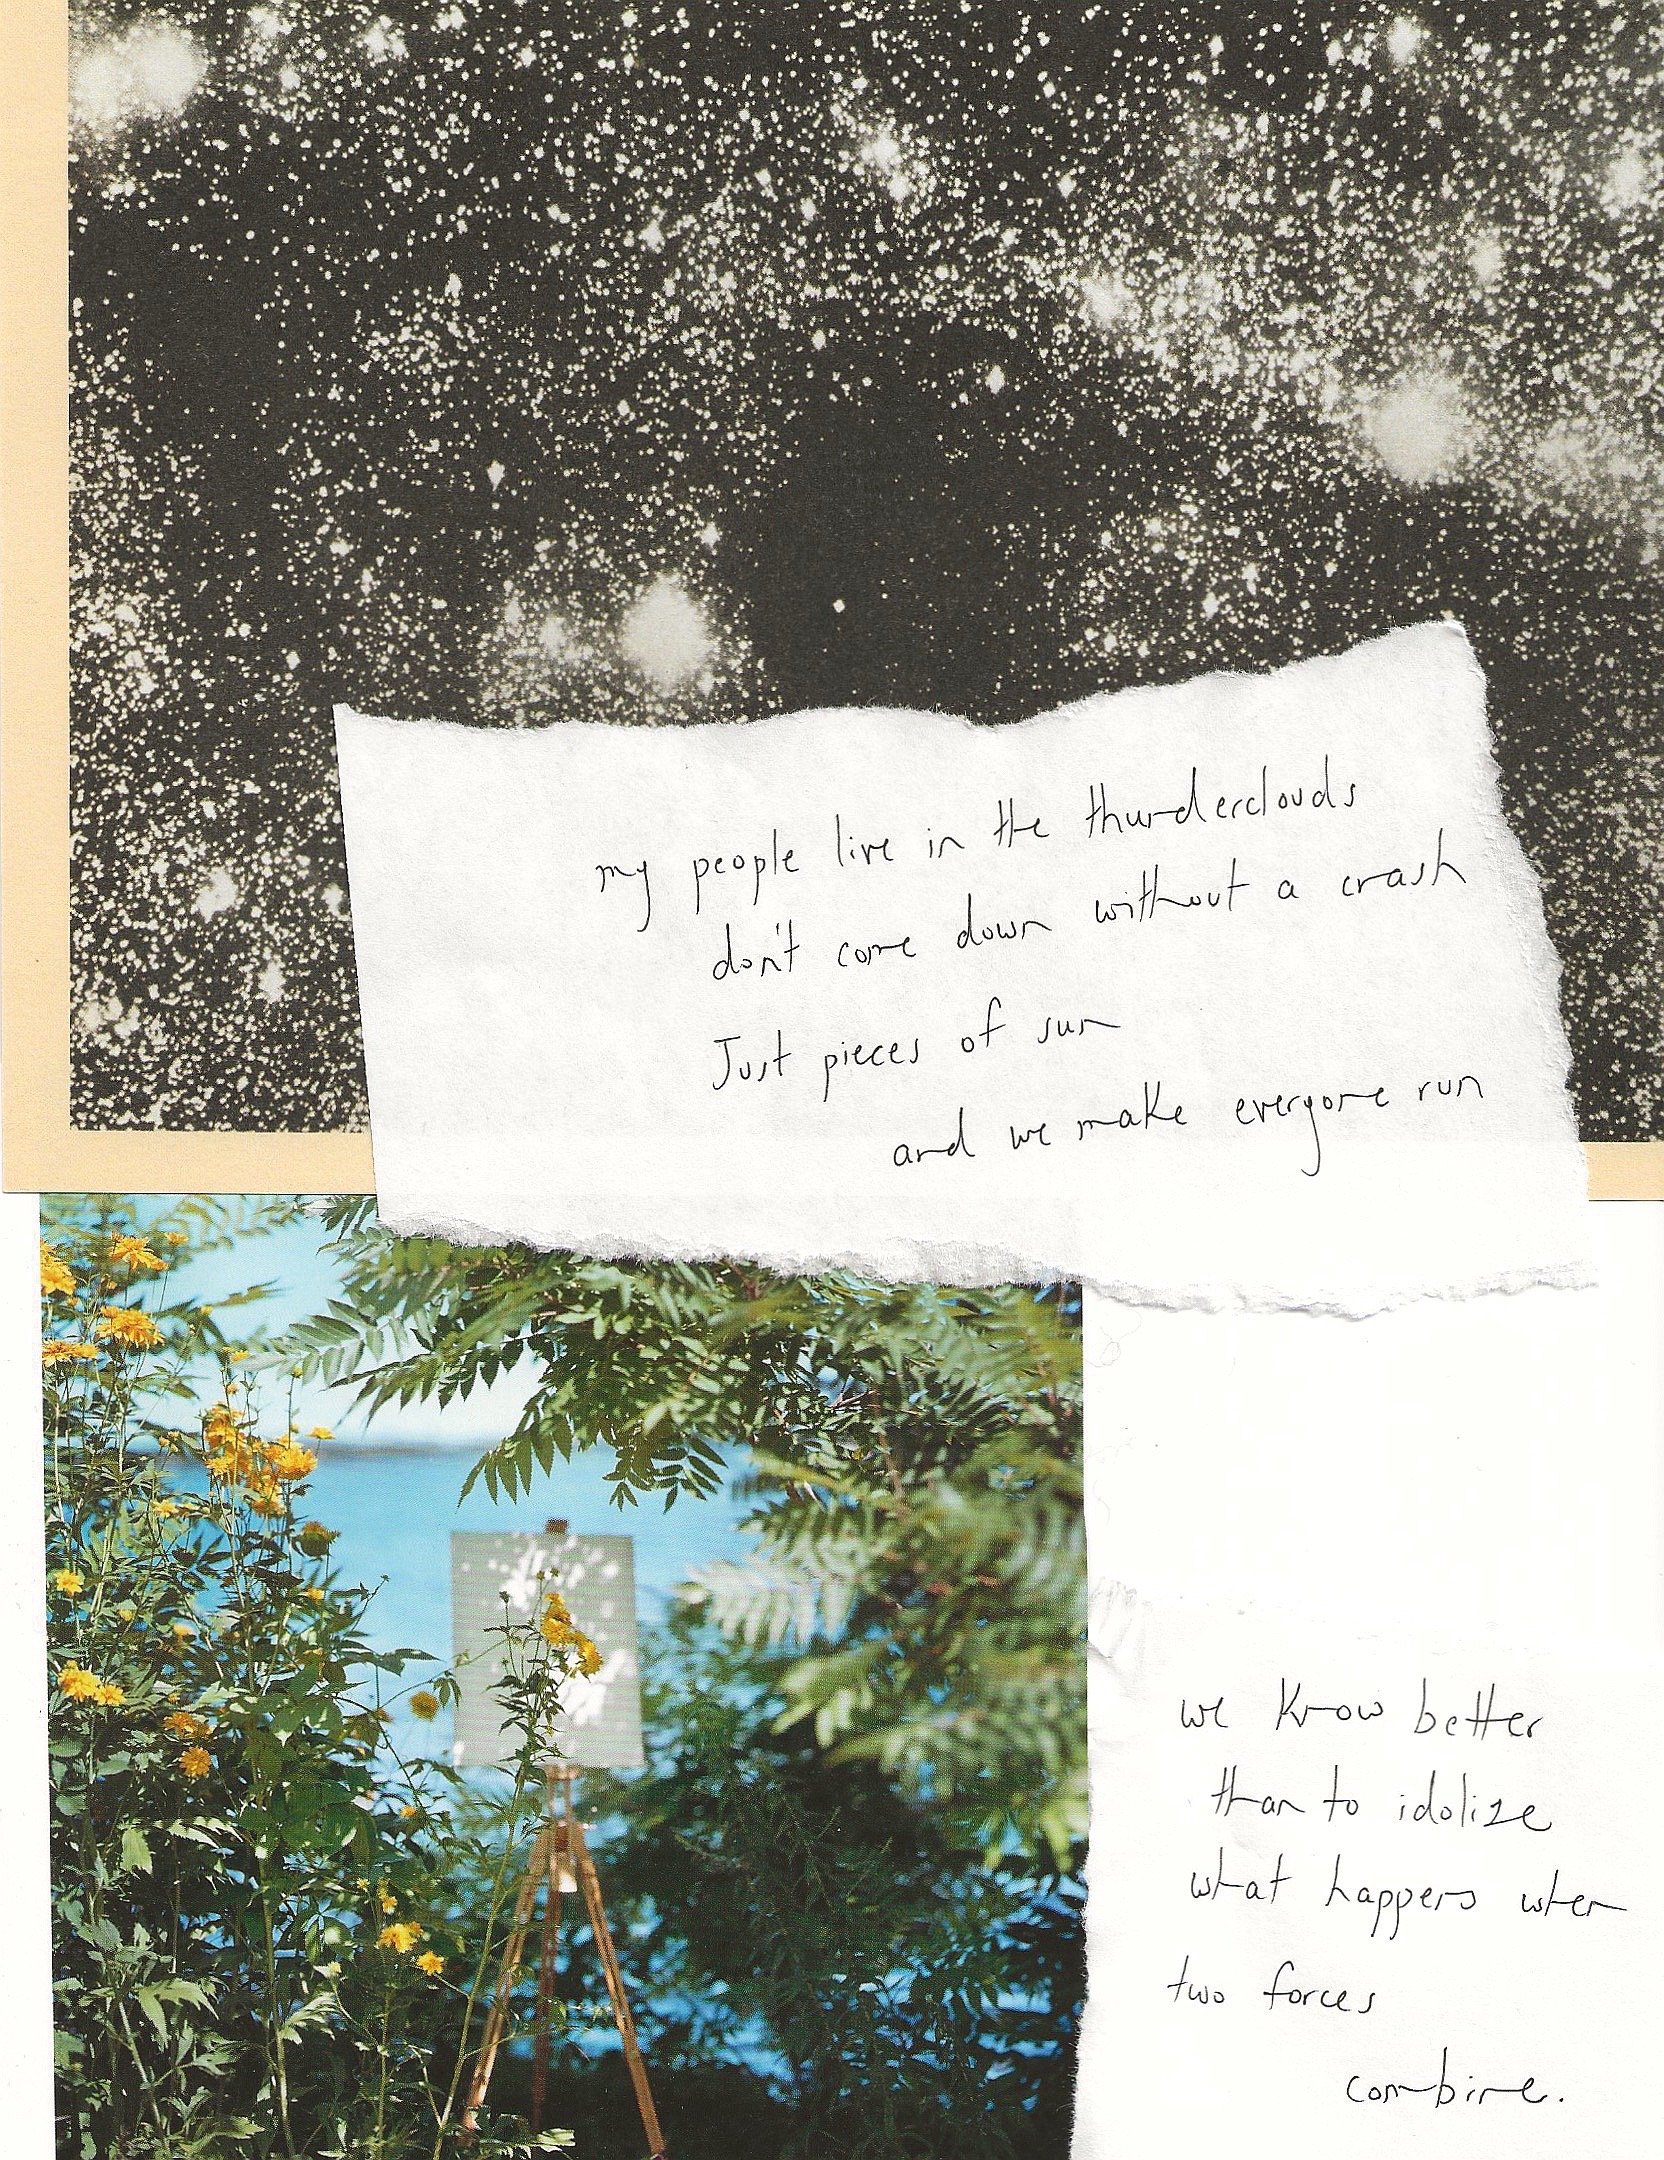 my people live in the thunderclouds
don't come down without a crash
Just pieces of sun
and we make everyone run
we know better
than to idolize
what happens when
two forces
combine.